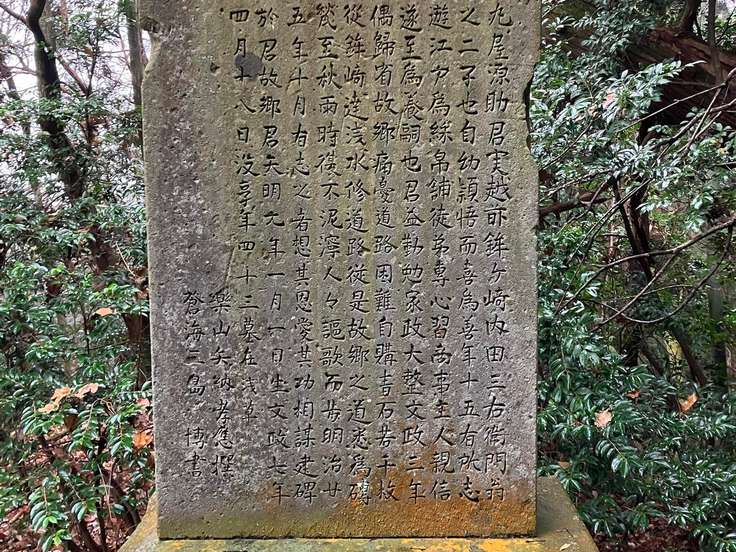 丸屋源助君実越前鉾ヶ崎内田三右衛門翁
之二子也自幼頴悟而喜為善年十五有吹志
遊江戸為絲帛舗徒弟専心習商事主人親信
遂至為養嗣也君益勤勉家政大整文政三年
偶帰省故郷痛憂道路困難自購青石若干枚
従鉾崎達浅水修道路従是故郷之道悉為磚
甃至秋雨時復不泥濘人々謳歌而昔明治廿
五年十月有志之者想其恩愛其功相謀建碑
於君故郷君天明元年一月一日生文政七年
四月十八日没享年四十三墓在浅草
樂山矢納孝應撰
蒼海三島博書